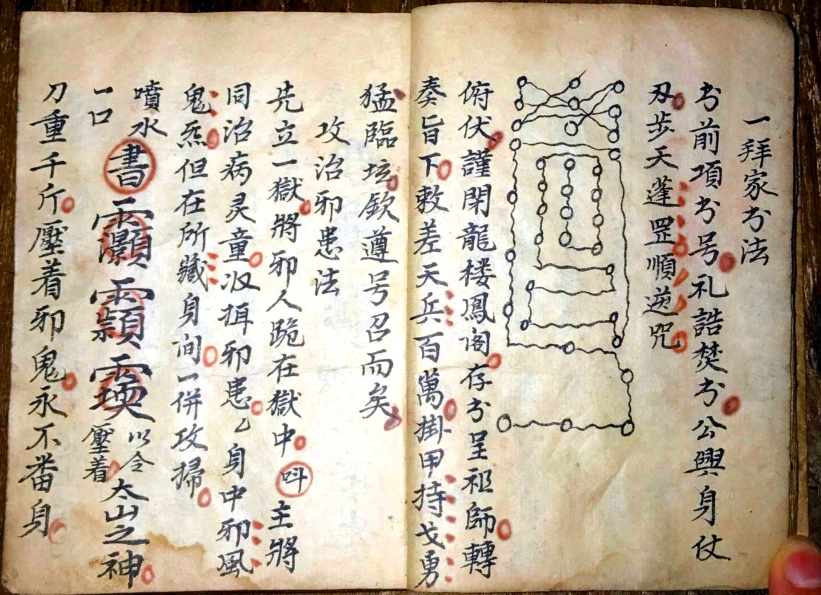 一拜家书法
书前項书号礼誥焚书公與身仗
刃步天蓬罡順逆咒
俯伏謹閑龍楼鳳阁存书呈祖師轉
奏旨下敕差天兵百萬掛甲持戈勇
猛臨坛欽遵号召而矣
攻治邪患法
先立一獄將邪人跪在獄中呌主將
同治病灵童収揖邪患乙身中邪風
鬼炁但在所藏身间一併攻掃
噴水
一口
書
以令
壓着
太山之神
刀重千斤壓着邪鬼永不番身